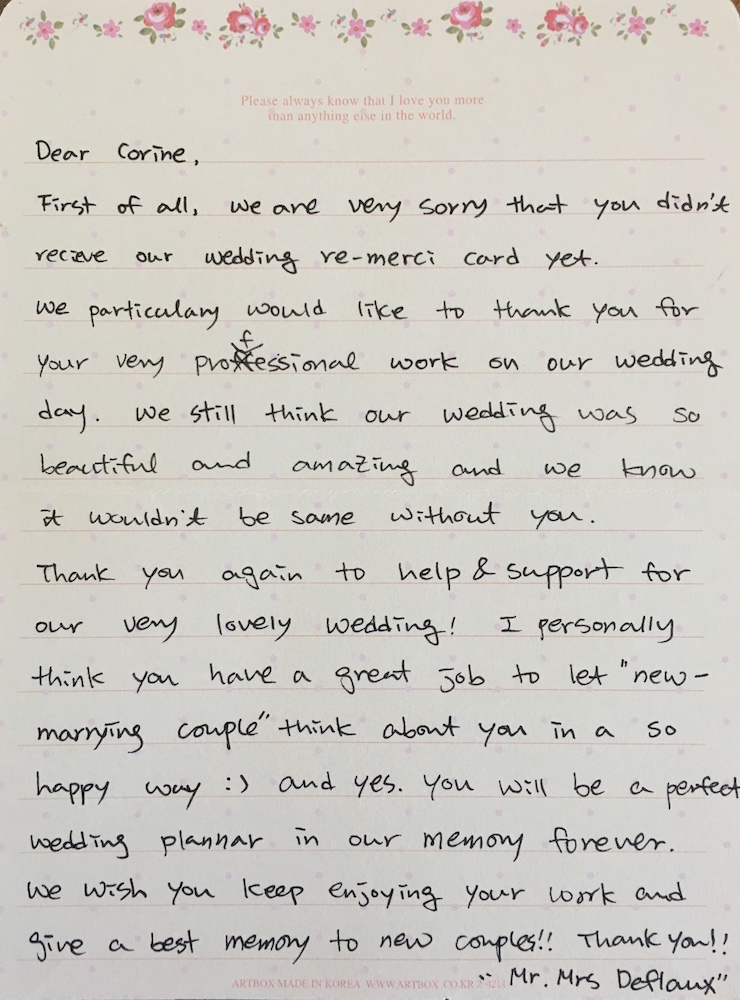 Please always know that I love you more
than anything else in the world.
Dear Corine,
First of all, we are very sorry that you didn't
recieve our wedding re-merci card yet.
we particulary would like to thank you for
your very professional work on our wedding
day. we still think our wedding was so
beautiful and amazing and we know
it wouldn't be same without you.
Thank you again to help & support for
our very lovely wedding! I personally
think you have a great job to let "new-
marrying couple" think about you in a so
happy way :) and yes. you will be a perfect
wedding plannar in our memory forever.
we wish you keep enjoying your work and
give a best memory to new couples!! Thank you!!
" Mr. Mrs Deflaux"
ARTBOX MADE IN KOREA WWW.ARTBOX.CO.KR